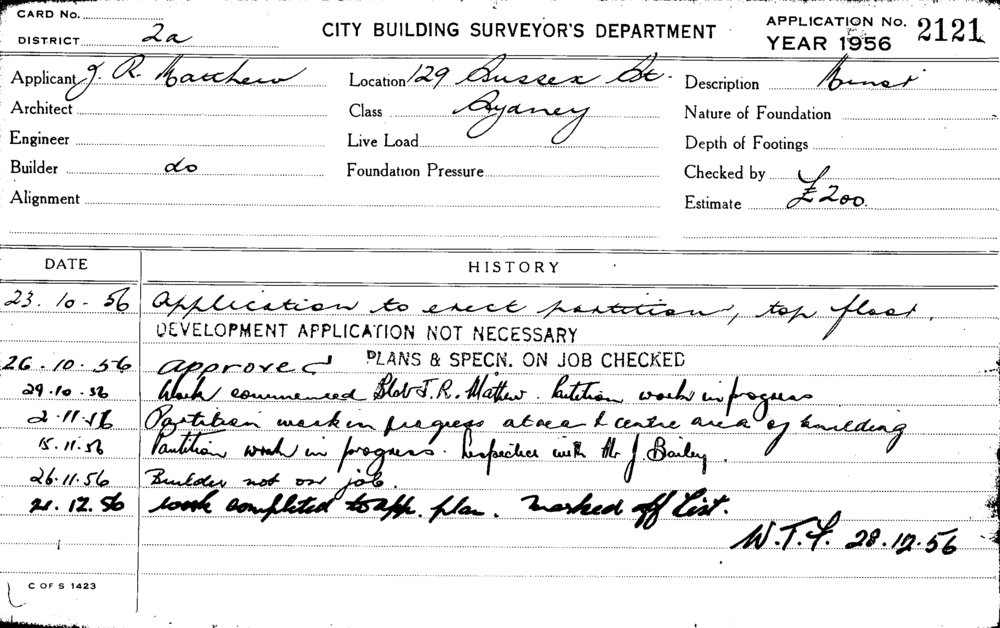 CARD No.
DISTRICT 2a
CITY BUILDING SURVEYOR'S DEPARTMENT
APPLICATION No. 2121
YEAR 1956
Applicant J. R. Matthew
Location 129 Sussex St.
Description
Architect
Class Sydney
Nature of Foundation
Engineer
Live Load
Depth of Footings
Builder do
Foundation Pressure
Checked by
Alignment
Estimate £200.
DATE
HISTORY
23.10.56 Application to erect partition, top floor.
DEVELOPMENT APPLICATION NOT NECESSARY
26.10.56 approved PLANS & SPECN. ON JOB CHECKED
29.10.56 Work commenced J.R. Mathew. Partition work in progress
2.11.56 Partition work in progress at rear & centre area of building
15.11.56 Partition work in progress. Inspection with Mr J Bailey.
26.11.56 Builder not on job.
21.12.56 work completed to app. plan. marked off List.
W.T.F. 28.12.56
C OF S 1423